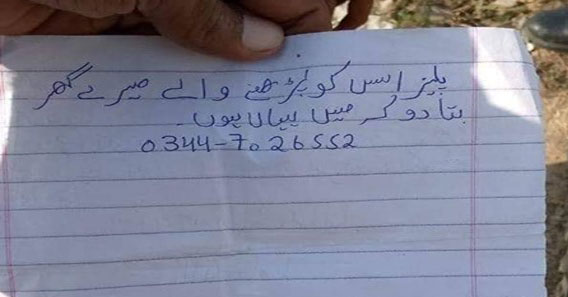 پلیز اسں کو پڑھنے والے میرے گھر
بتا دو کہ میں یہاں ہوں۔
0344-7026552